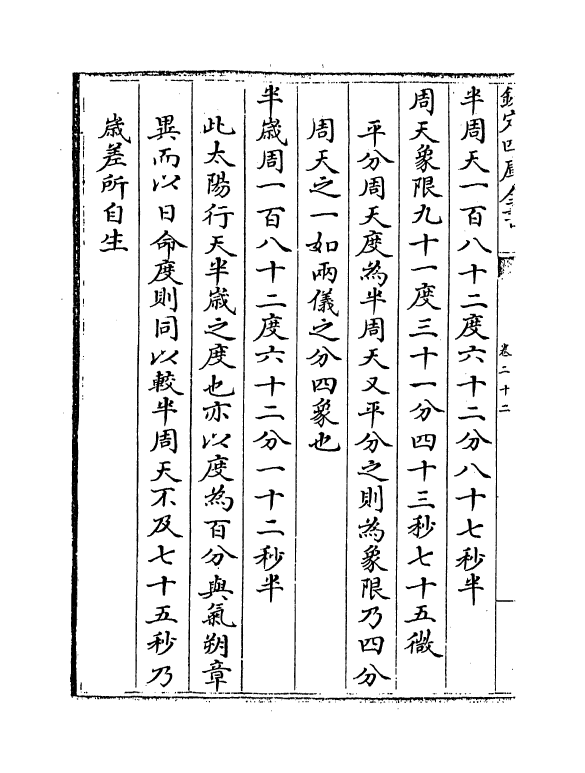 欽定四庫全書
卷二十二
半周天一百八十二度六十二分八十七秒半
周天象限九十一度三十一分四十三秒七十五微
平分周天度為半周天又平分之則為象限乃四分
周天之一如兩儀之分四象也
半歲周一百八十二度六十二分一十二秒半
此太陽行天半歲之度也亦以度為百分與氣朔章
異而以日命度則同以較半周天不及七十五秒乃
歲差所自生